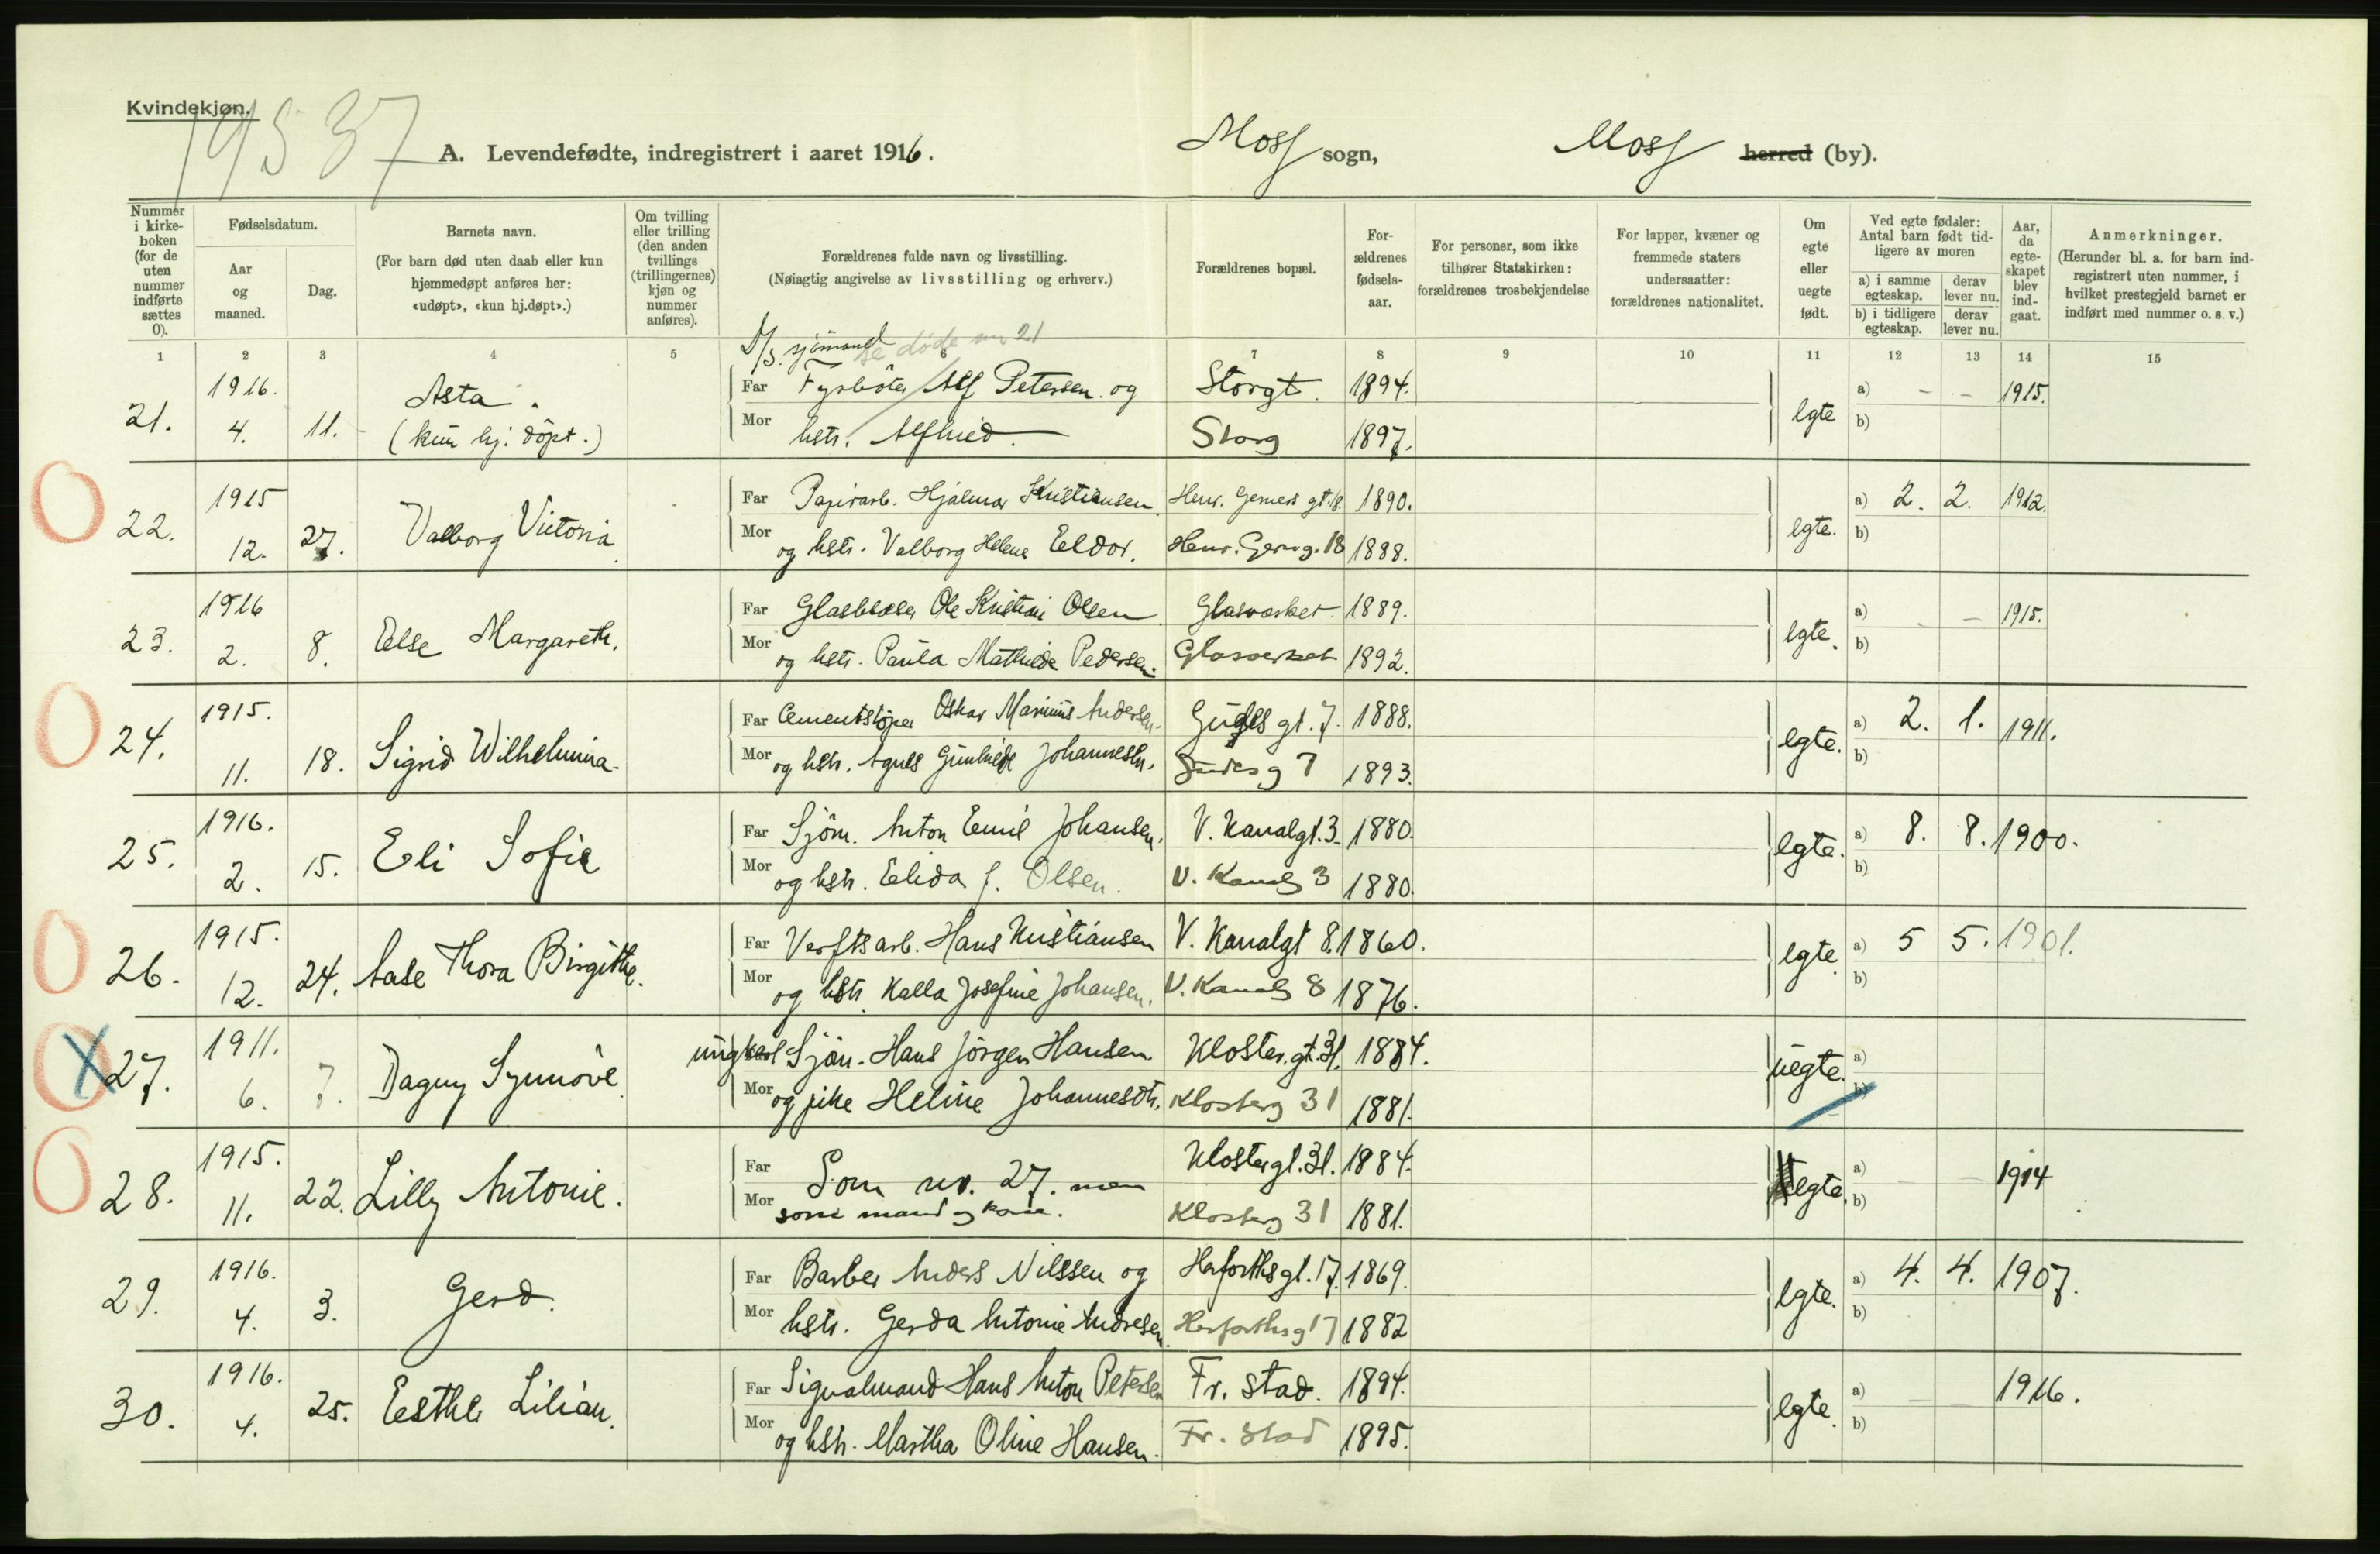 Kvindekjøn.
19537
A. Levendefødte, indregistrert i aaret 1916.
Moss sogn,
Moss herred (by).
Nummer i kirke-boken (for de uten nummer indførte sættes 0).
Fødselsdatum.
Aar og maaned.
Dag.
Barnets navn.
(For barn død uten daab eller kun hjemmedøpt anføres her: «udøpt», «kun hj.døpt».)
Om tvilling eller trilling (den anden tvillings (trillingernes) kjøn og nummer anføres).
Forældrenes fulde navn og livsstilling.
(Nøiagtig angivelse av livsstilling og erhverv.)
Forældrenes bopæl.
For-ældrenes fødsels-aar.
For personer, som ikke tilhører Statskirken: forældrenes trosbekjendelse
For lapper, kvæner og fremmede staters undersaatter: forældrenes nationalitet.
Om egte eller uegte født.
Ved egte fødsler: Antal barn født tid-ligere av moren
a) i samme egteskap. derav lever nu.
b) i tidligere egteskap. derav lever nu.
Aar, da egte-skapet blev ind-gaat.
Anmerkninger.
(Herunder bl. a. for barn ind-registrert uten nummer, i hvilket prestegjeld barnet er indført med nummer o. s. v.)
1 2 3 4 5 6 7 8 9 10 11 12 13 14 15
D/S. sjömand se döde nr 21
1916. Asta. Far Fyrböter Alf Petersen og Storgt. 1894. a) - - 1915.
21. 4. 11. (kun hj. döpt.) Mor hstr. Alfhild. Storg 1897. egte b)
1915 Far Papirarb. Hjalmar Kristiansen Henr. Gerners gt. 18. 1890. a) 2. 2. 1912.
22. 12. 27. Valborg Victoria Mor og hstr. Valborg Helene Eldor. Henr. Gern.g. 18 1888. egte. b)
1916 Far Glasblaser Ole Kristian Olsen Glasværket 1889. a) - - 1915.
23. 2. 8. Else Margareth. Mor og hstr. Paula Mathilde Pedersen. Glasverket 1892. egte. b)
1915. Far Cementstöper Oskar Marinus Andersen. Gudes gt. 7. 1888. a) 2. 1. 1911.
24. 11. 18. Sigrid Wilhelmina. Mor og hstr. Agnes Gunhilde Johannesen. Gudes g 7 1893. egte. b)
1916. Far Sjöm. Anton Emil Johansen. V. Kanalgt. 3. 1880. a) 8. 8. 1900.
25. 2. 15. Eli Sofie Mor og hstr. Elida J. Olsen. V. Kanalg 3 1880. egte. b)
1915. Far Verftsarb. Hans Kristiansen V. Kanalgt 8. 1860. a) 5 5. 1901.
26. 12. 24. Aase Thora Birgitte. Mor og hstr. Kalla Josefine Johansen. V. Kanalg 8 1876. egte. b)
1911. ungkarl Sjöm. Hans Jörgen Hansen. Kloster.gt. 31. 1884. a)
X 27. 6. 7. Dagny Synnöve. Mor og pike Heline Johannesdtr. Klosterg 31 1881. uegte. b)
1915. Far Som nr. 27. men Klostergt. 31. 1884. a) - - 1914
28. 11. 22. Lilly Antonie. Mor som mand og kone. Klosterg 31 1881. egte. b)
1916. Far Barber Anders Nilssen og Herforths gt. 17. 1869. a) 4. 4. 1907.
29. 4. 3. Gerd. Mor hstr. Gerda Antonie Andresen. Herforths g 17 1882 egte. b)
1916. Far Signalmand Hans Anton Petersen Fr. stad. 1894. a) - - 1916.
30. 4. 25. Esther Lilian. Mor og hstr. Martha Oline Hansen. Fr. stad 1895. egte. b)